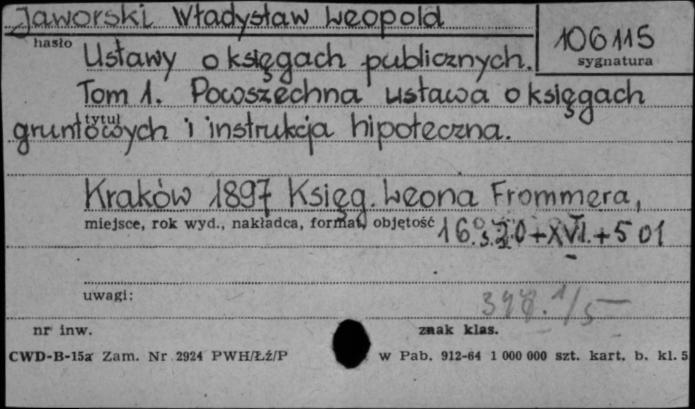 Jaworski Władysław Leopold
106115
hasło
sygnatura
Ustawy o księgach publicznych.
Tom 1. Powszechna ustawa o księgach
tytuł
gruntowych i instrukcja hipoteczna.
Kraków 1897 Księg. Leona Frommera,
miejsce, rok wyd., nakładca, format, objętość
16°. s. 20+XVI.+501
uwagi:
nr inw.
znak klas.
CWD-B-15a Zam. Nr 2924 PWH/Łź/P
w Pab. 912-64 1 000 000 szt. kart. b. kl. 5